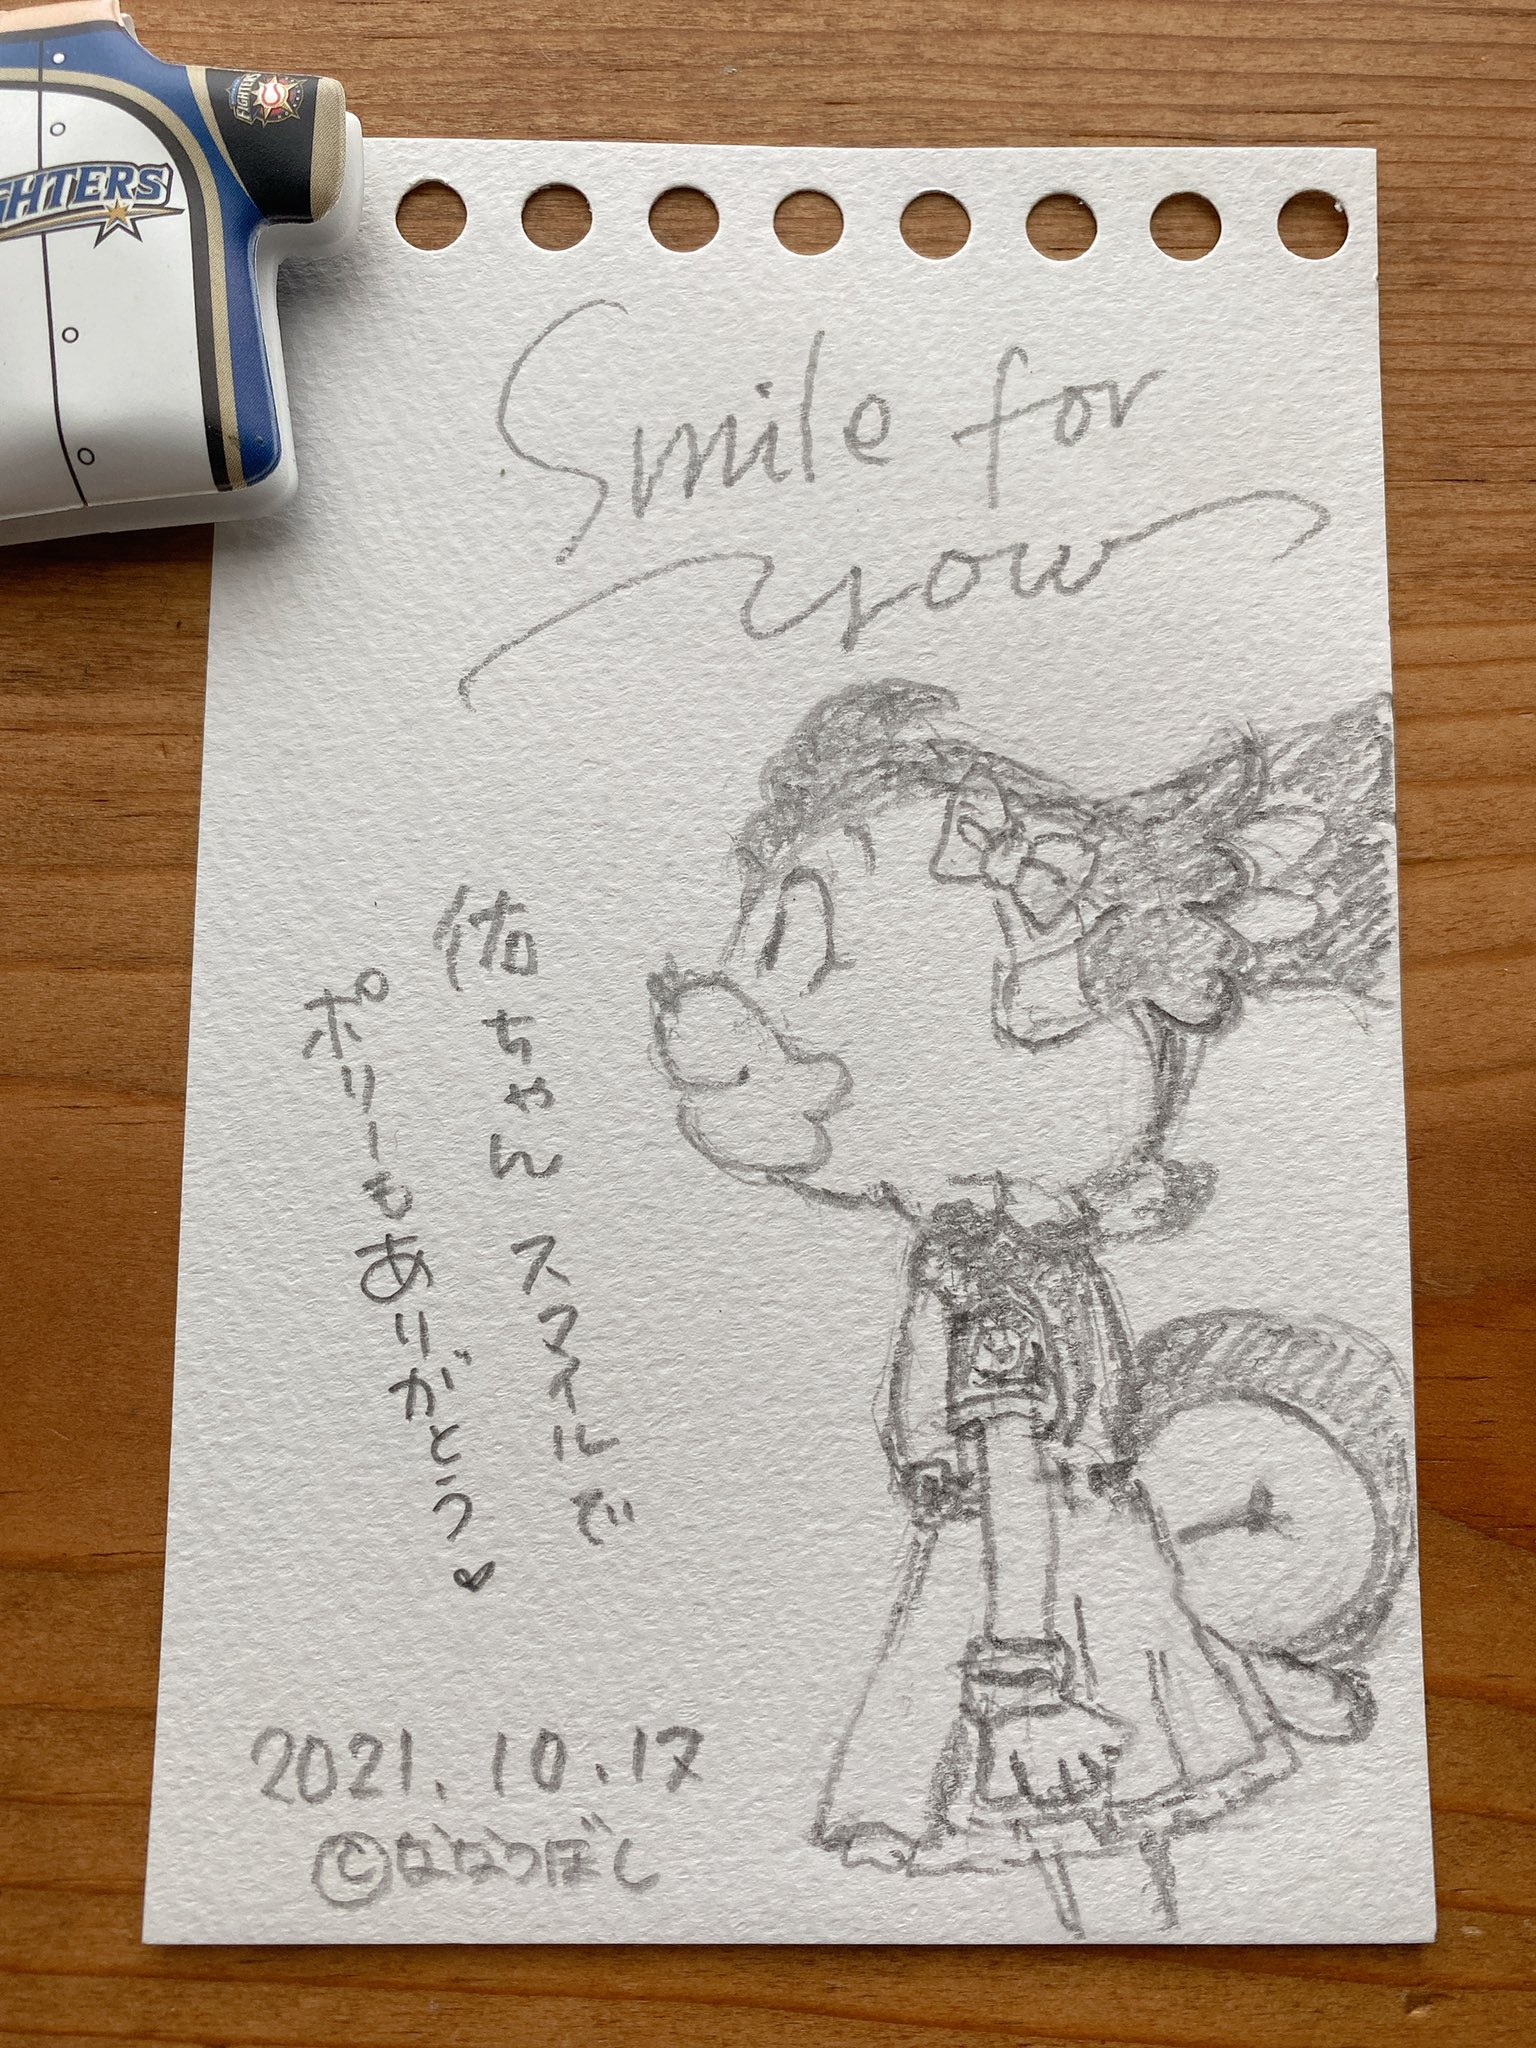 FIGHTERS
FIGHTERS
Smile for
you
佑ちゃん スマイルで
ポリーもありがとう♥
2021.10.17
©ななつぼし